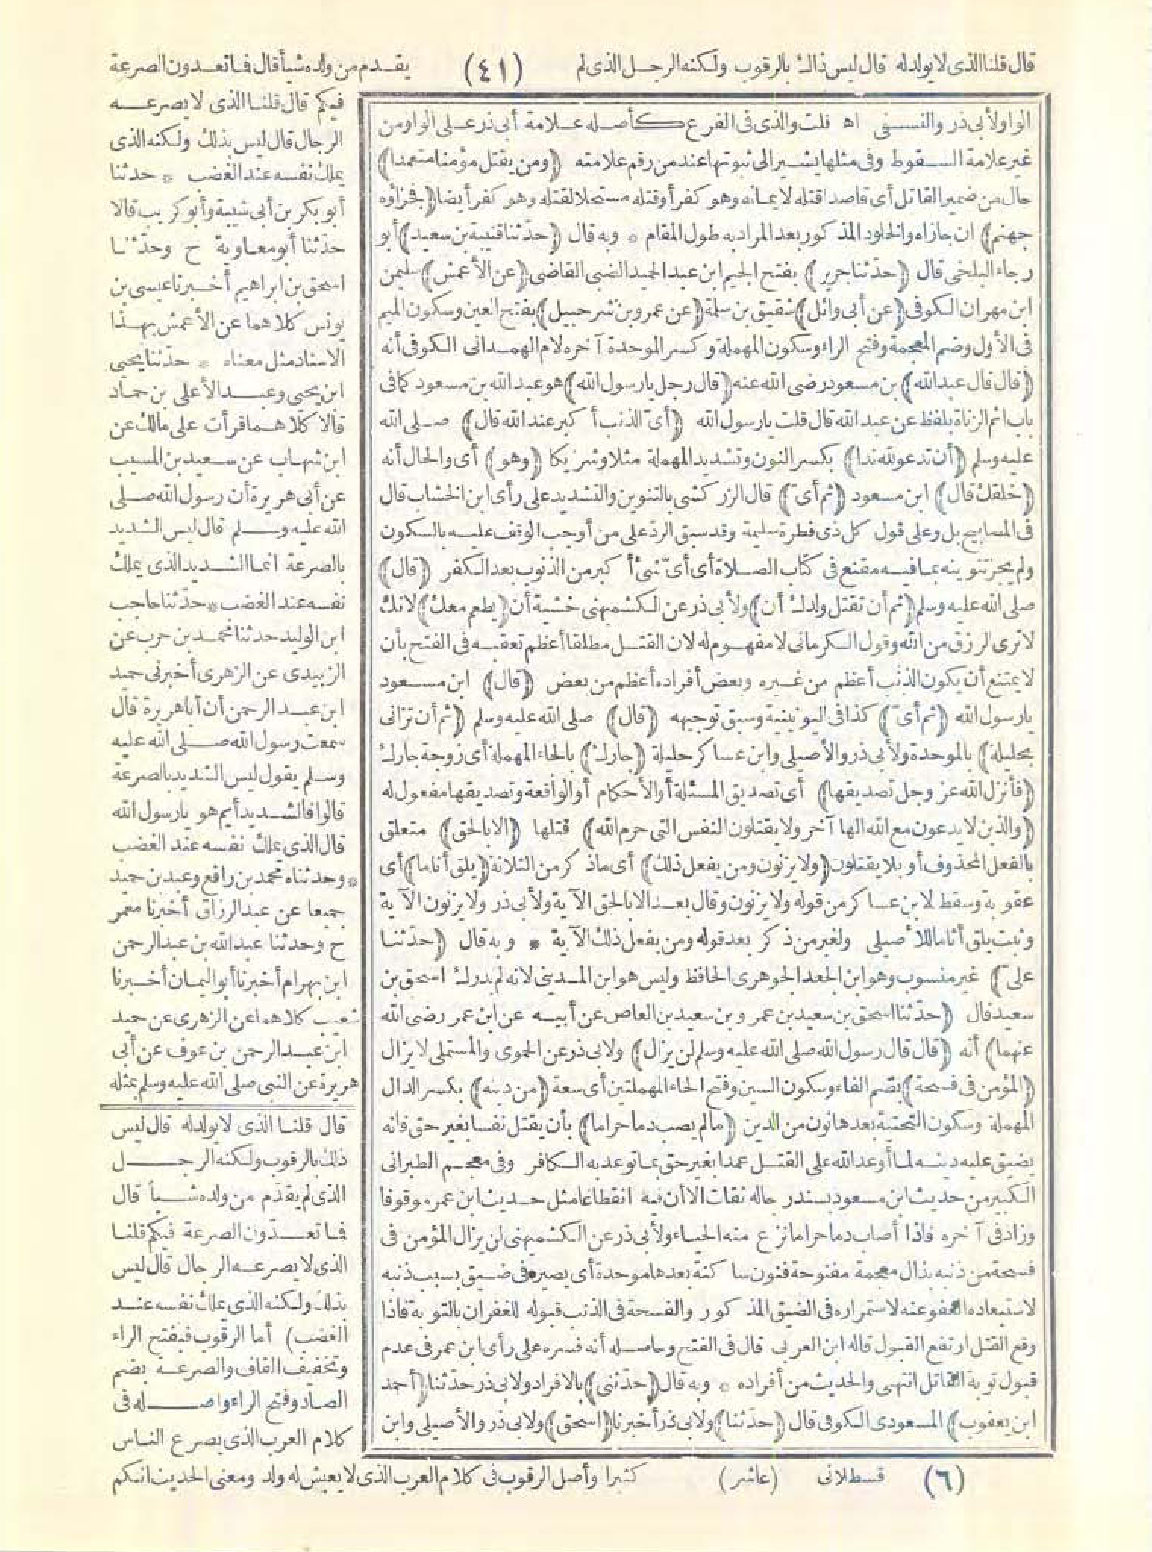 قال قلنا الذى لا يولد له قال ليس ذاك بالرقوب ولكنه الرجل الذى لم (٤١) يقدم من ولده شيأ قال فما تعدون الصرعة
فيكم قال قلنا الذى لا يصرعه
الرجال قال ليس بذلك ولكنه الذى
يملك نفسه عند الغضب * حدثنا
أبو بكر بن أبى شيبة وأبو كريب قالا
حدثنا أبو معاوية ح وحدثنا
اسحق بن ابراهيم أخبرنا عيسى بن
يونس كلاهما عن الأعمش بهذا
الاسناد مثل معناه * حدثنا يحيى
ابن يحيى وعبد الأعلى بن حماد
قالا كلاهما قرأت على مالك عن
ابن شهاب عن سعيد بن المسيب
عن أبى هريرة أن رسول الله صلى
الله عليه وسلم قال ليس الشديد
بالصرعة انما الشديد الذى يملك
نفسه عند الغضب * حدثنا حاجب
ابن الوليد حدثنا محمد بن حرب عن
الزبيدى عن الزهرى أخبرنى حميد
ابن عبد الرحمن أن أبا هريرة قال
سمعت رسول الله صلى الله عليه
وسلم يقول ليس الشديد بالصرعة
قالوا فالشديد أيم هو يا رسول الله
قال الذى يملك نفسه عند الغضب
* وحدثناه محمد بن رافع وعبد بن حميد
جميعا عن عبد الرزاق أخبرنا معمر
ح وحدثنا عبد الله بن عبد الرحمن
ابن بهرام أخبرنا أبو اليمان أخبرنا
شعيب كلاهما عن الزهرى عن حميد
ابن عبد الرحمن بن عوف عن أبى
هريرة عن النبى صلى الله عليه وسلم بمثله
قال قلنا الذى لا يولد له قال ليس
ذلك بالرقوب ولكنه الرجل
الذى لم يقدم من ولده شيأ قال
فما تعدون الصرعة فيكم قلنا
الذى لا يصرعه الرجال قال ليس
بذلك ولكنه الذى يملك نفسه عند
الغضب) أما الرقوب فبفتح الراء
وتخفيف القاف والصرعة بضم
الصاد وفتح الراء وأصله فى
كلام العرب الذى يصرع الناس
الواو لأبى ذر والنسفى اه قلت والذى فى الفرع كأصله علامة أبى ذر على الواو من
غير علامة السقوط وفى مثلها يشير الى ثبوتها عند من رقم علامته (ومن يقتل مؤمنا متعمدا)
حال من ضمير القاتل أى قاصدا قتله لايمانه وهو كفر أو قتله مستحلا لقتله وهو كفر أيضا (فجزاؤه
جهنم) ان جازاه والخلود المذكور بعد المراد به طول المقام * وبه قال (حدثنا قتيبة بن سعيد) أبو
رجاء البلخى قال (حدثنا جرير) بفتح الجيم ابن عبد الحميد الضبى القاضى (عن الأعمش) سليمن
ابن مهران الكوفى (عن أبى وائل) شقيق بن سلمة (عن عمرو بن شرحبيل) بفتح العين وسكون الميم
فى الأول وضم المعجمة وفتح الراء وسكون المهملة وكسر الموحدة آخره لام الهمدانى الكوفى أنه
(قال قال عبد الله) بن مسعود رضى الله عنه (قال رجل يا رسول الله) هو عبد الله بن مسعود كما فى
باب اثم الزناة بلفظ عن عبد الله قال قلت يا رسول الله (أى الذنب أكبر عند الله قال) صلى الله
عليه وسلم (أن تدعو لله ندا) بكسر النون وتشديد المهملة مثلا وشريكا (وهو) أى والحال أنه
(خلقك قال) ابن مسعود (ثم أى) قال الزركشى بالتنوين والتشديد على رأى ابن الخشاب قال
فى المصابيح بل وعلى قول كل ذى فطرة سليمة وقد سبق الرد على من أوجب الوقف عليه بالسكون
ولم يجز تنوينه بما فيه مقنع فى كتاب الصلاة أى أى شئ أكبر من الذنوب بعد الكفر (قال)
صلى الله عليه وسلم (ثم أن تقتل ولدك أن) ولأبى ذر عن الكشميهنى خشية أن (يطعم معك) لانك
لا ترى الرزق من الله وقول الكرمانى لا مفهوم له لان القتل مطلقا أعظم تعقبه فى الفتح بأن
لا يمتنع أن يكون الذنب أعظم من غيره وبعض أفراده أعظم من بعض (قال) ابن مسعود
يا رسول الله (ثم أى) كذا فى اليونينية وسبق توجيهه (قال) صلى الله عليه وسلم (ثم أن تزانى
بحليلة) بالموحدة ولأبى ذر والأصيلى وابن عساكر حليلة (جارك) بالحاء المهملة أى زوجة جارك
(فأنزل الله عز وجل تصديقها) أى تصديق المسئلة أو الأحكام أو الواقعة وتصديقها مفعول له
(والذين لا يدعون مع الله الها آخر ولا يقتلون النفس التى حرم الله) قتلها (الا بالحق) متعلق
بالفعل المحذوف أو بلا يقتلون (ولا يزنون ومن يفعل ذلك) أى ما ذكر من الثلاثة (يلق أثاما) أى
عقوبة وسقط لابن عساكر من قوله ولا يزنون وقال بعد الا بالحق الآية ولأبى ذر ولا يزنون الآية
وثبت يلق أثاما للأصيلى ولغير من ذكر بعد قوله ومن يفعل ذلك الآية * وبه قال (حدثنا
على) غير منسوب وهو ابن الجعد الجوهرى الحافظ وليس هو ابن المدينى لانه لم يدرك اسحق بن
سعيد قال (حدثنا اسحق بن سعيد بن عمرو بن سعيد بن العاص عن أبيه عن ابن عمر رضى الله
عنهما) أنه (قال قال رسول الله صلى الله عليه وسلم لن يزال) ولابى ذر عن الحموى والمستملى لا يزال
(المؤمن فى فسحة) بضم الفاء وسكون السين وفتح الحاء المهملتين أى سعة (من دينه) بكسر الدال
المهملة وسكون التحتية بعدها نون من الدين (ما لم يصب دما حراما) بأن يقتل نفسا بغير حق فانه
يضيق عليه دينه لما أوعد الله على القتل عمدا بغير حق بما توعد به الكافر وفى معجم الطبرانى
الكبير من حديث ابن مسعود بسند رجاله ثقات الا أن فيه انقطاعا مثل حديث ابن عمر موقوفا
وزاد فى آخره فاذا أصاب دما حراما نزع منه الحياء ولأبى ذر عن الكشميهنى لن يزال المؤمن فى
فسحة من ذنبه بذال معجمة مفتوحة فنون ساكنة بعدها موحدة أى يصير فى ضيق بسبب ذنبه
لاستبعاده العفو عنه لاستمراره فى الضيق المذكور والفسحة فى الذنب قبوله للغفران بالتوبة فاذا
وقع القتل ارتفع القبول قاله ابن العربى قال فى الفتح وحاصله أنه فسره على رأى ابن عمر فى عدم
قبول توبة القاتل انتهى والحديث من أفراده * وبه قال (حدثنى) بالافراد ولابى ذر حدثنا (أحمد
ابن يعقوب) المسعودى الكوفى قال (حدثنا) ولابى ذر أخبرنا (اسحق) ولابى ذر والأصيلى وابن
(٦) قسطلانى (عاشر) كثيرا وأصل الرقوب فى كلام العرب الذى لا يعيش له ولد ومعنى الحديث انكم